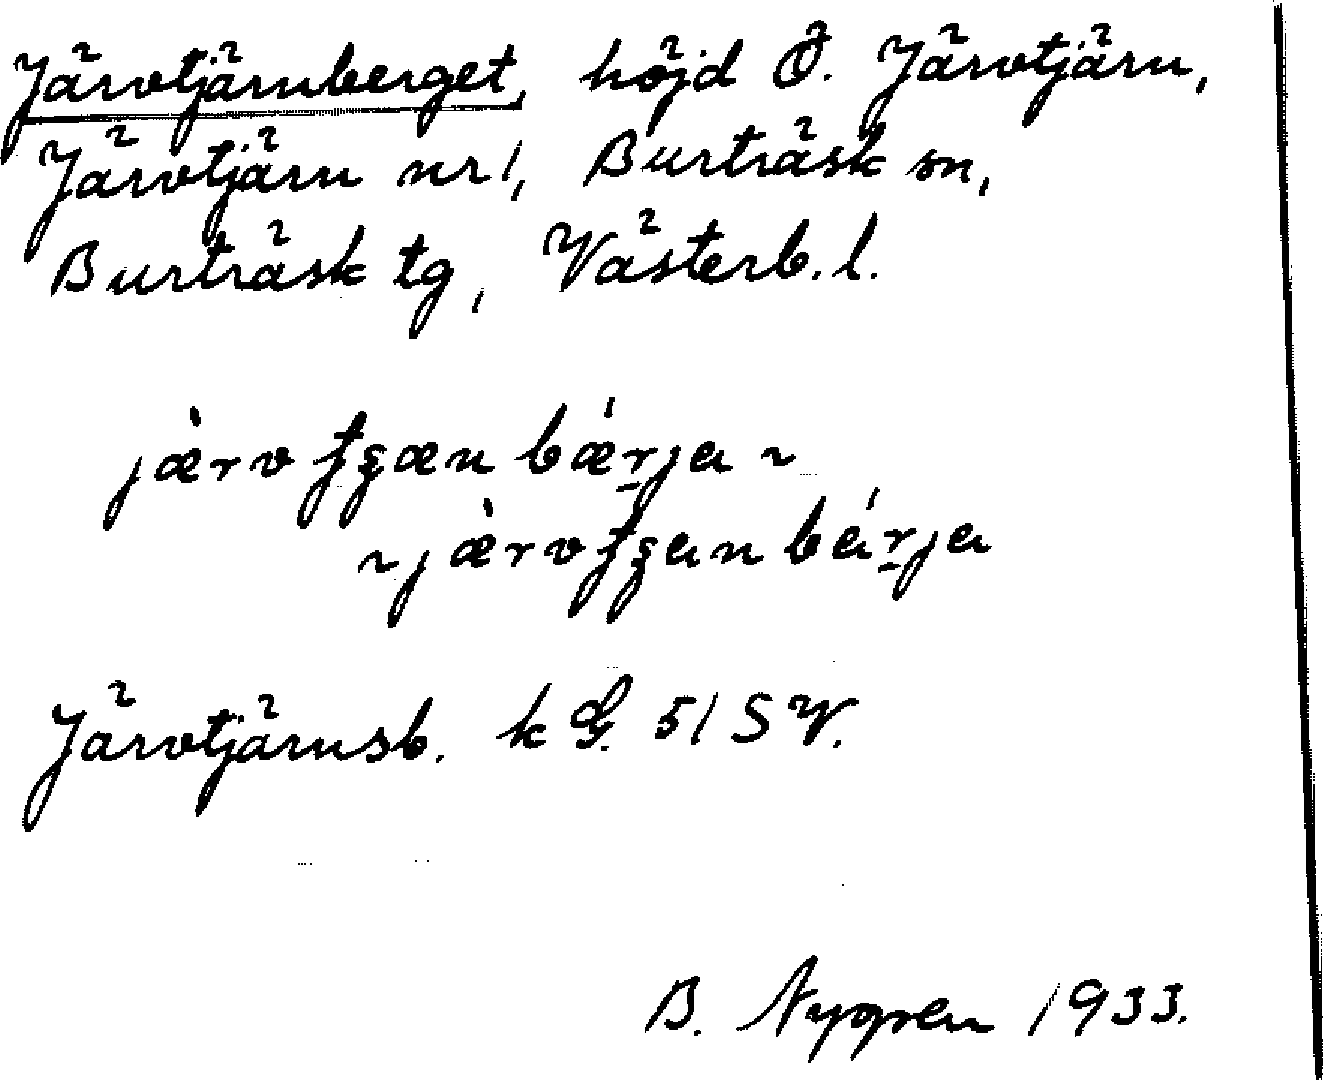 Järvtjärnberget, höjd Ö. Järvtjärn,
Järvtjärn nr 1, Burträsk sn,
Burträsk tg, Västerb. l.
jæ̀rvtʃæn bǽrja ~
~ jæ̀rvtʃan bárja
Järvtjärnsb. k G. 51 SV.
B. Nygren 1933.